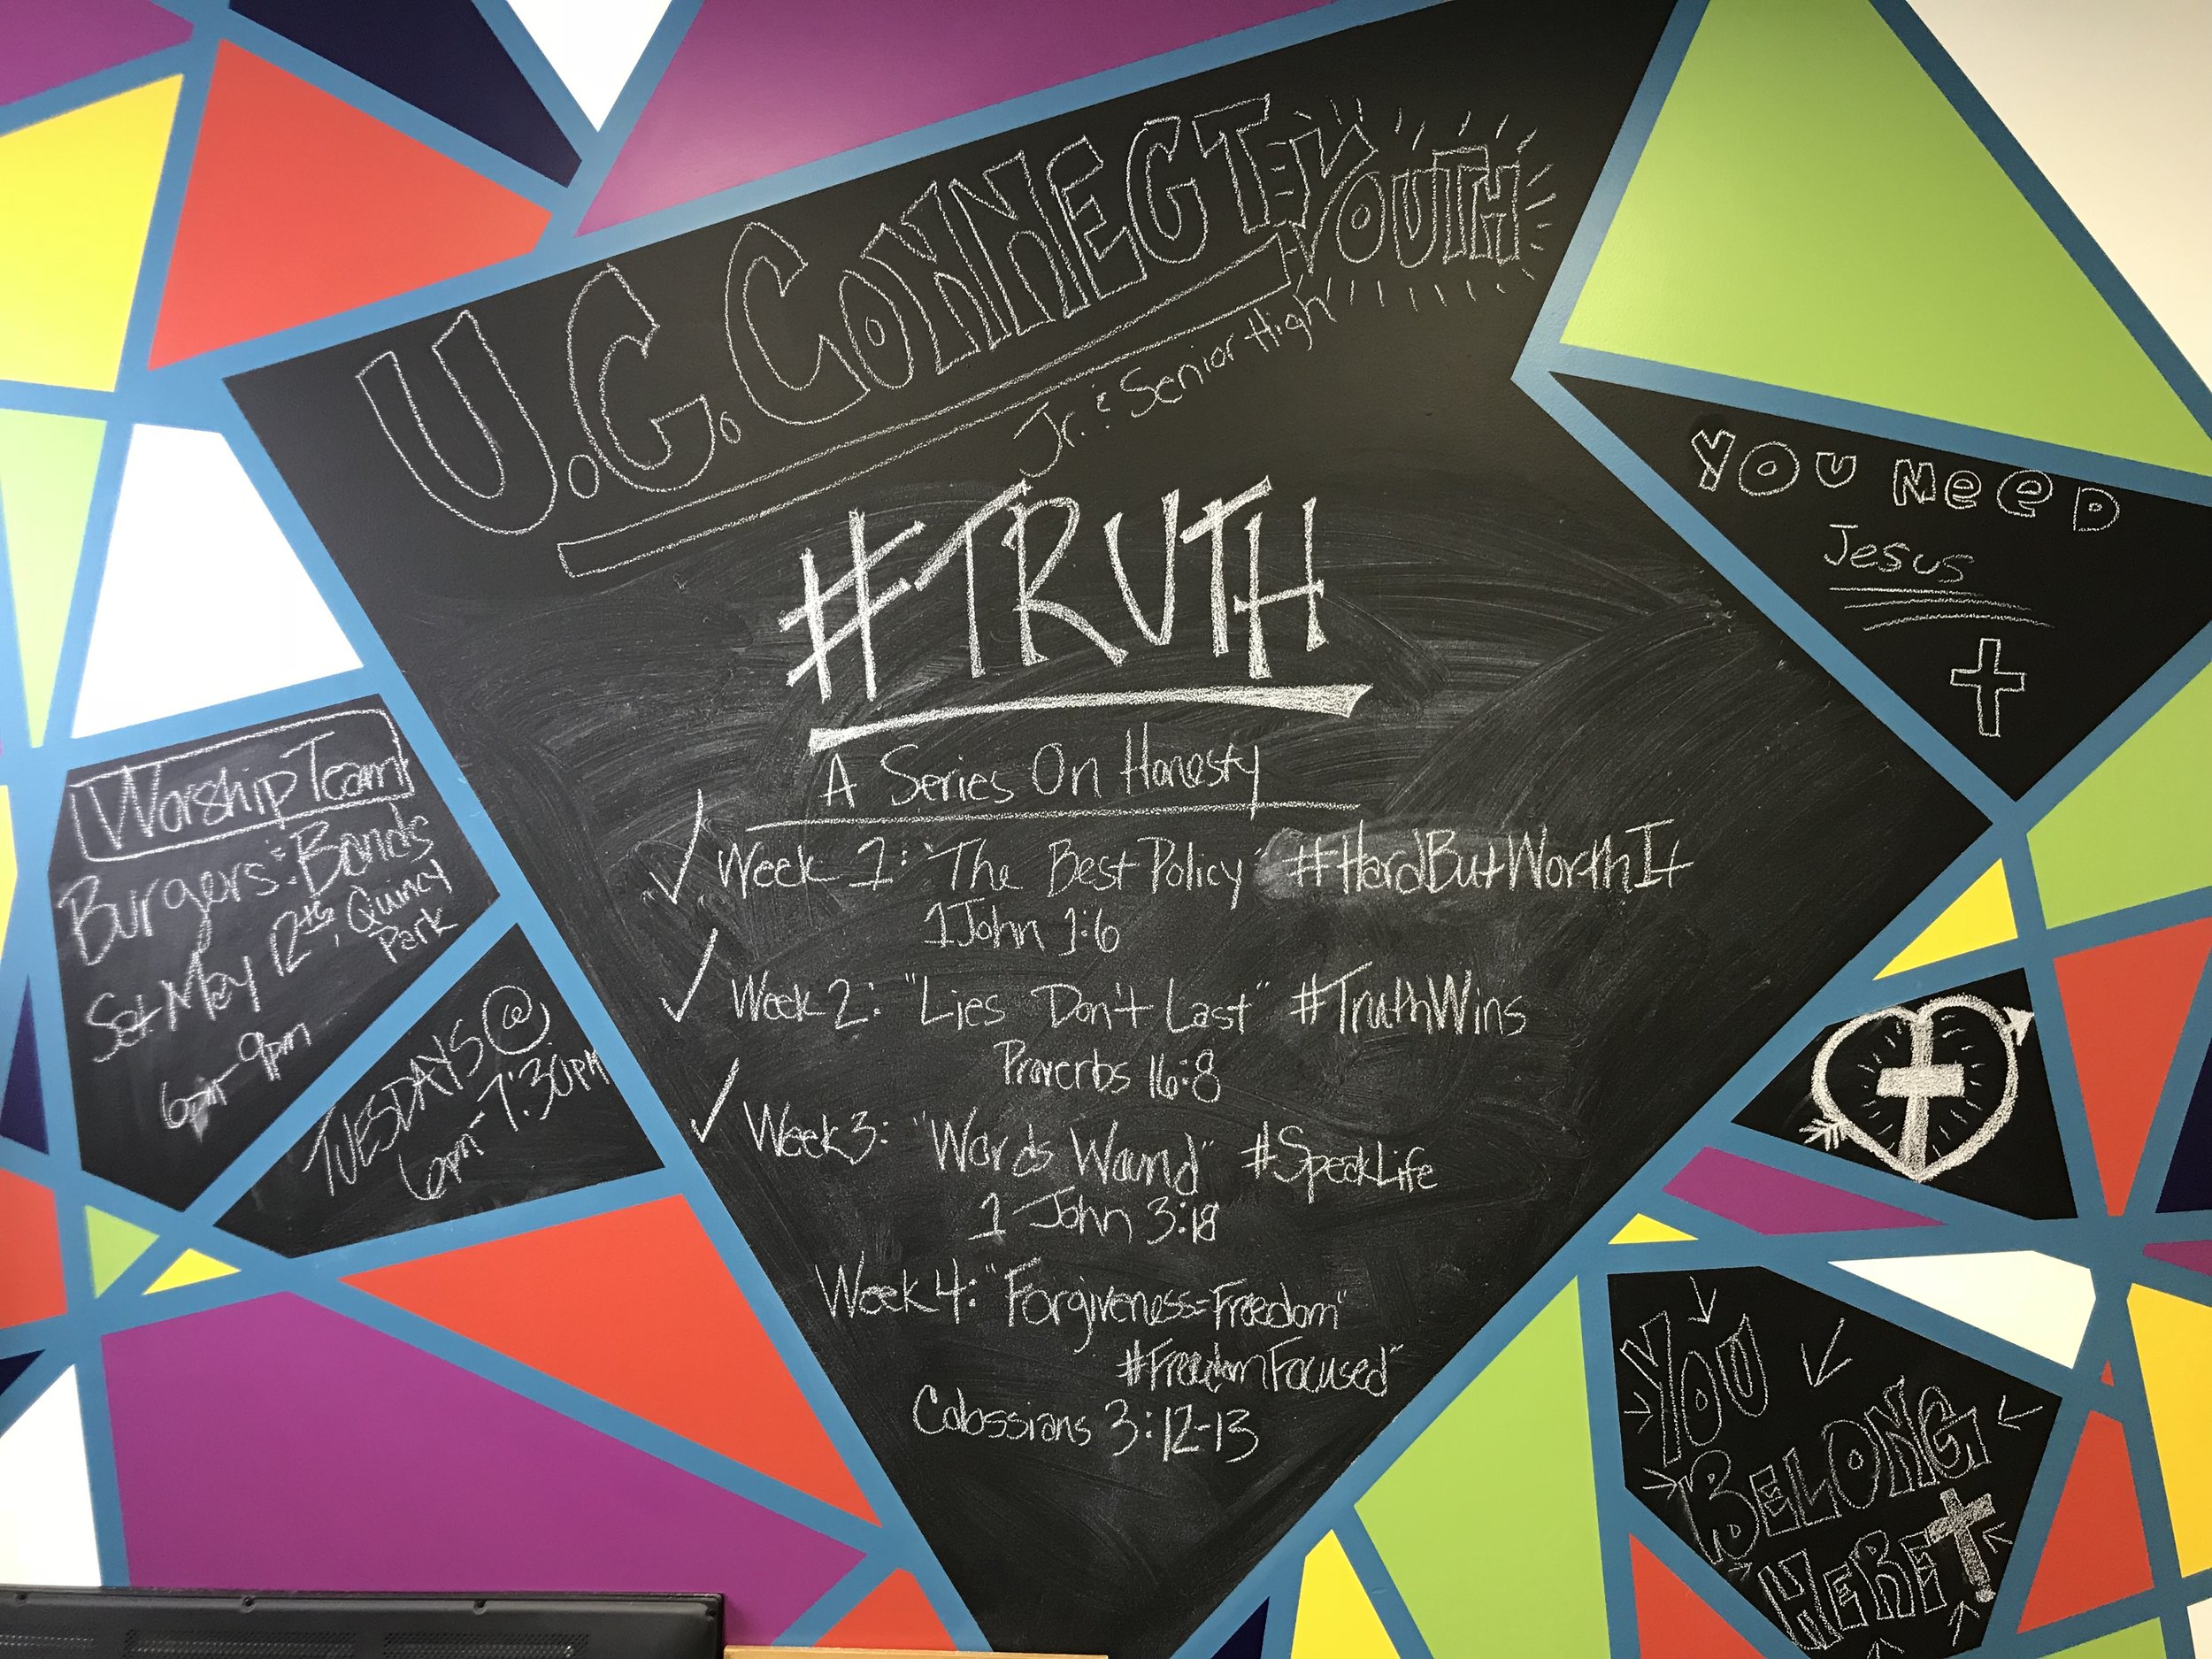 U.G. CONNECTED YOUTH
Jr. & Senior High
#TRUTH
A Series On Honesty
✓ Week 1: "The Best Policy" #HardButWorthIt
1 John 1:6
✓ Week 2: "Lies Don't Last" #TruthWins
Proverbs 16:8
✓ Week 3: "Words Wound" #SpeakLife
1 John 3:18
Week 4: "Forgiveness=Freedom"
#FreedomFocused"
Colossians 3:12-13
Worship Team
Burgers & Bands
Sat May 12th, Quincy
Park
6pm-9pm
TUESDAYS @
6pm-7:30PM
YOU NeeD
Jesus
YOU
BELONG
HERE!